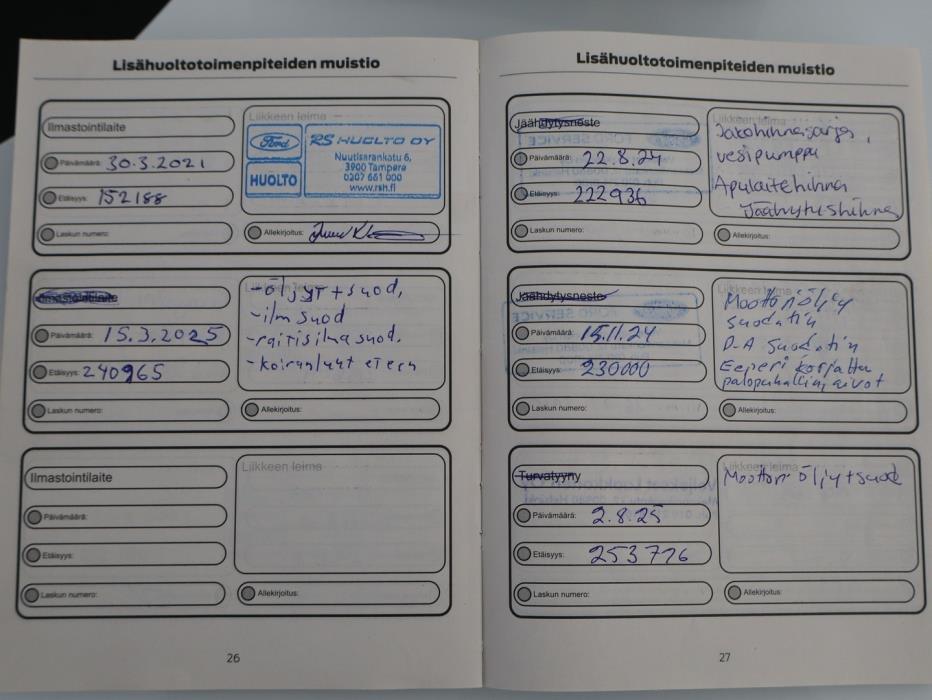 Lisähuoltotoimenpiteiden muistio
Ilmastointilaite
Liikkeen leima
Päivämäärä: 30.3.2021
Etäisyys: 152188
Laskun numero:
Allekirjoitus:
Ford
HUOLTO
RS HUOLTO OY
Nuutisarankatu 6,
3900 Tampere
0207 661 000
www.rsh.fi
Ilmastointilaite
Päivämäärä: 15.3.2025
Etäisyys: 240965
Laskun numero:
Allekirjoitus:
- öljyt + suod,
- ilm suod
- raitisilmasuod.
- koiranluut eteen
Ilmastointilaite
Liikkeen leima
Päivämäärä:
Etäisyys:
Laskun numero:
Allekirjoitus:
26
Lisähuoltotoimenpiteiden muistio
Jäähdytysneste
Liikkeen leima
Päivämäärä: 22.8.24
Etäisyys: 222936
Laskun numero:
Allekirjoitus:
Jakohihnasarja,
vesipumppu
Apulaitehihna
Jäähdytyshihna
Jäähdytysneste
Päivämäärä: 15.11.24
Etäisyys: 230000
Laskun numero:
Allekirjoitus:
Moottoriöljy
suodatin
D-A suodatin
Eeperi korjattu
palopuhallin, aivot
Turvatyyny
Liikkeen leima
Päivämäärä: 2.8.25
Etäisyys: 253776
Laskun numero:
Allekirjoitus:
Moottori öljy + suod
27